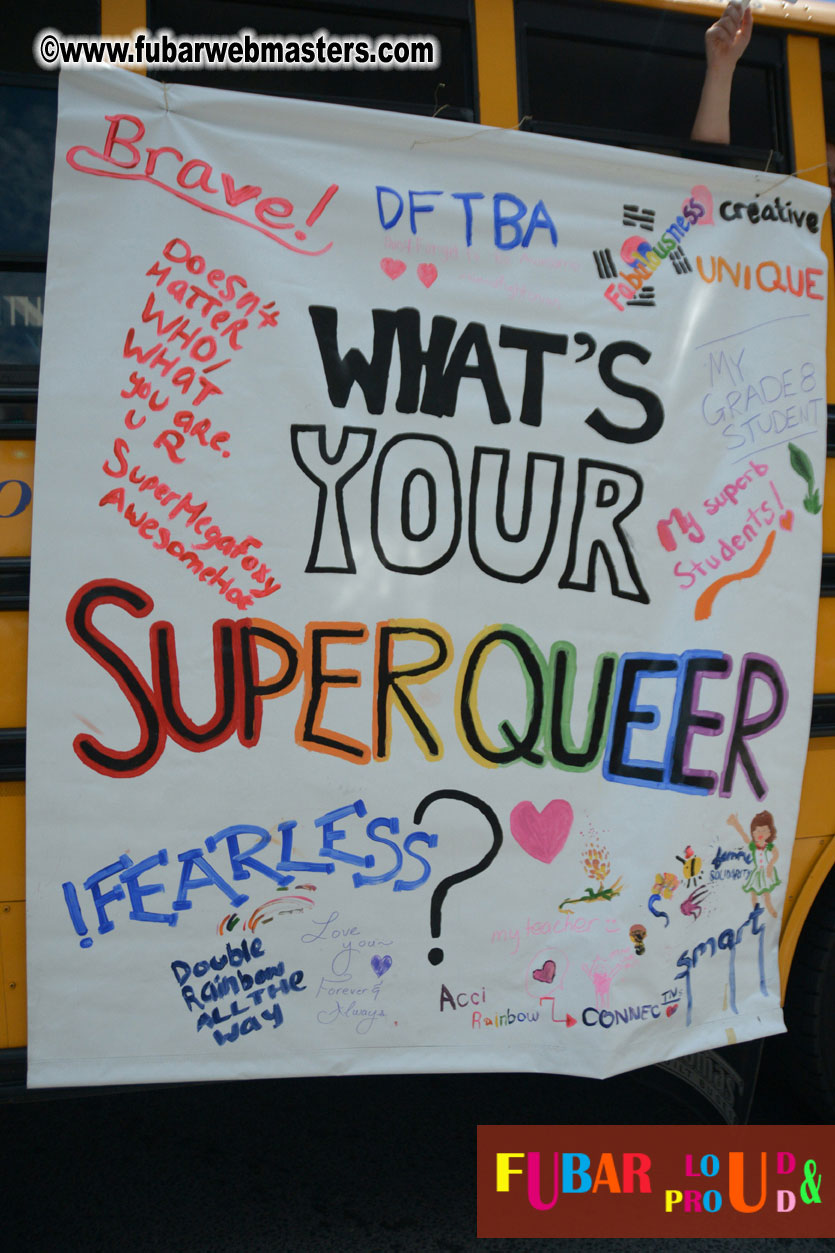 ©www.fubarwebmasters.com
Brave!
DFTBA
Fabulousness
creative
UNIQUE
Doesn't
Matter
WHO/
WHAT
you are.
U R
SuperMegaFoxy
AwesomeHot
WHAT'S
YOUR
SUPERQUEER
?
MY
GRADE 8
STUDENT
My superb
Students!
!FEARLESS
Double
Rainbow
ALL THE
WAY
Love
you
Forever &
Always
my teacher
SOLIDARITY
smart
Acci
Rainbow
CONNEC
FUBAR LOUD &
PROUD